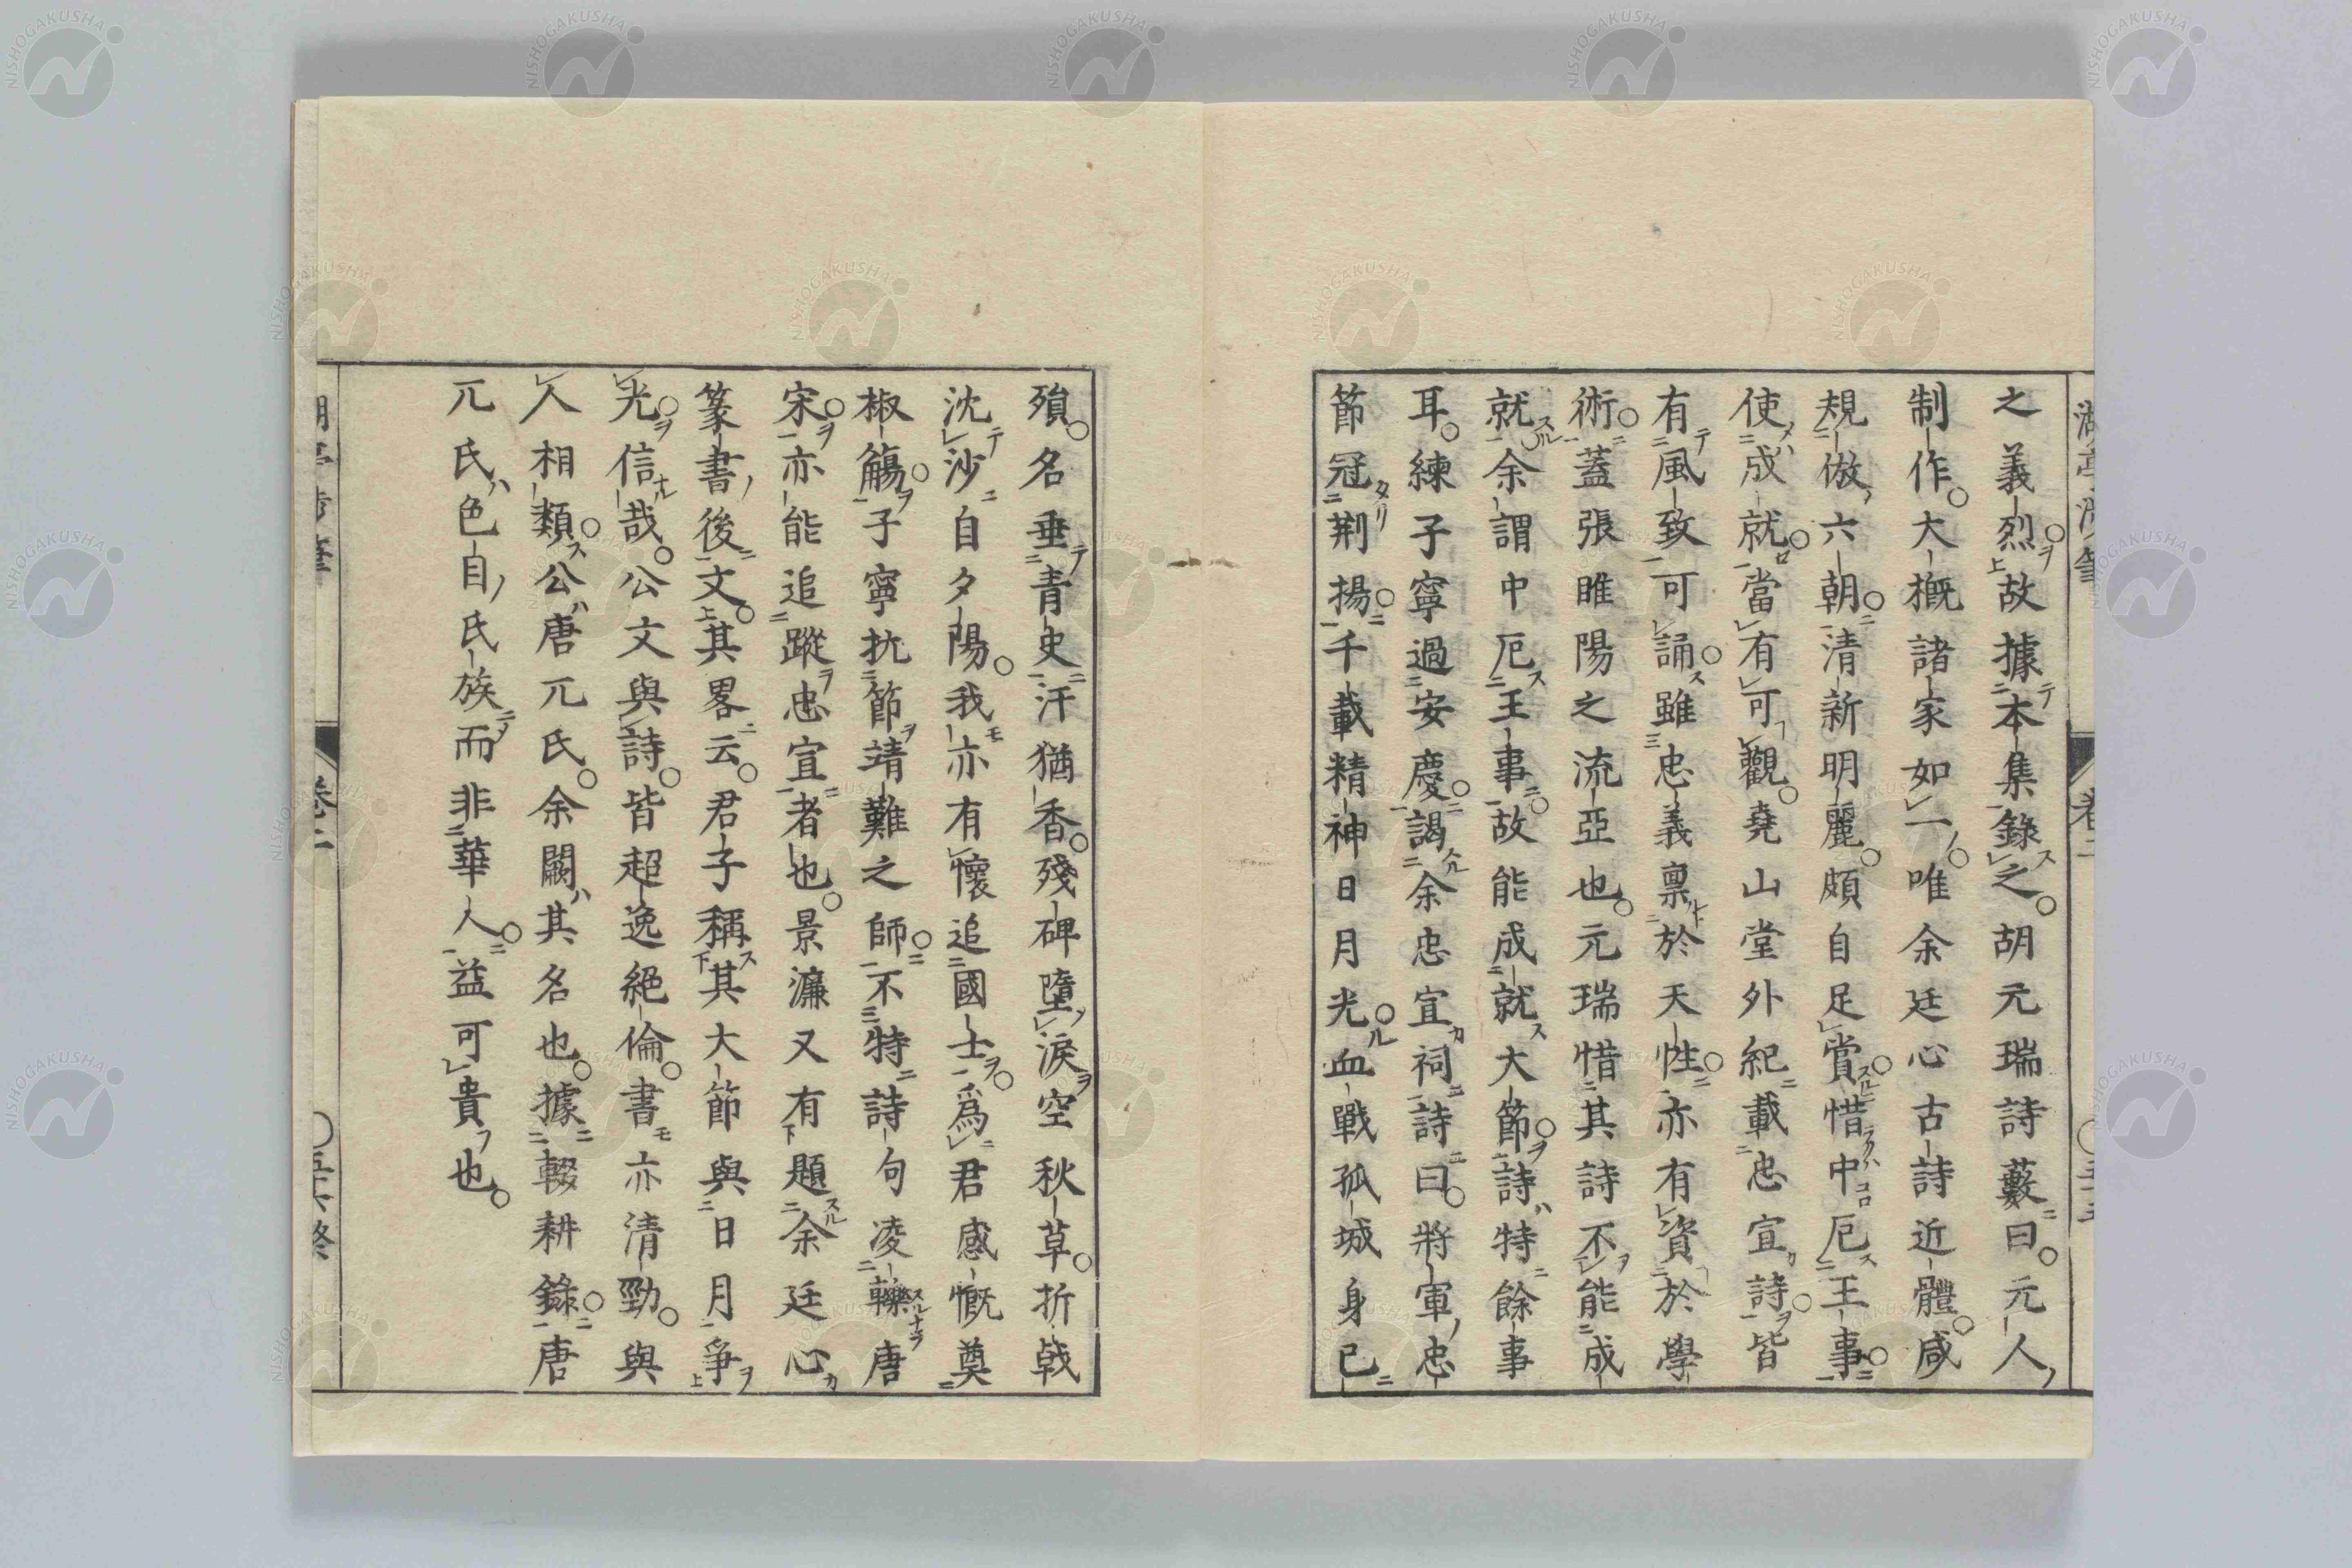 之義烈故據本集錄之胡元瑞詩藪曰元人
制作大概諸家如一唯余廷心古詩近體咸
規倣六朝清新明麗頗自足賞惜中厄王事
使成就當有可觀堯山堂外紀載忠宣詩皆
有風致可誦雖忠義禀於天性亦有資於學
術蓋張睢陽之流亞也元瑞惜其詩不能成
就余謂中厄王事故能成就大節詩特餘事
耳練子寧過安慶謁余忠宣祠詩曰將軍忠
節冠荆揚千載精神日月光血戰孤城身已
殞名垂青史汗猶香殘碑墮淚空秋草折戟
沈沙自夕陽我亦有懷追國士爲君感慨奠
椒觴子寧抗節靖難之師不特詩句凌轢唐
宋亦能追蹤忠宣者也景濂又有題余廷心
篆書後文其畧云君子稱其大節與日月爭
光信哉公文與詩皆超逸絕倫書亦清勁與
人相類公唐兀氏余闕其名也據輟耕錄唐
兀氏色目氏族而非華人益可貴也
卷二